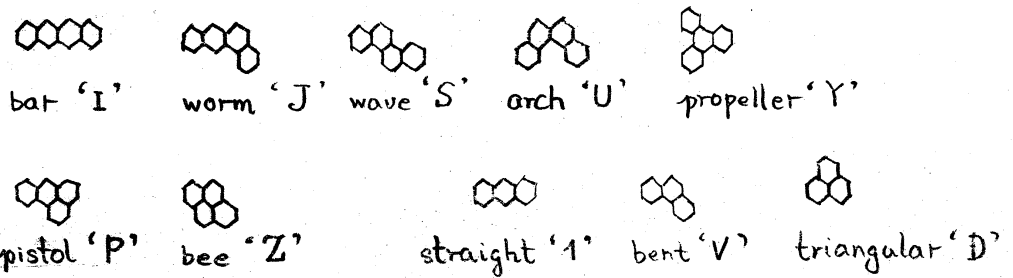 bar 'I' worm 'J' wave 'S' arch 'U' propeller 'Y'
pistol 'P' bee 'Z' straight '1' bent 'V' triangular 'D'